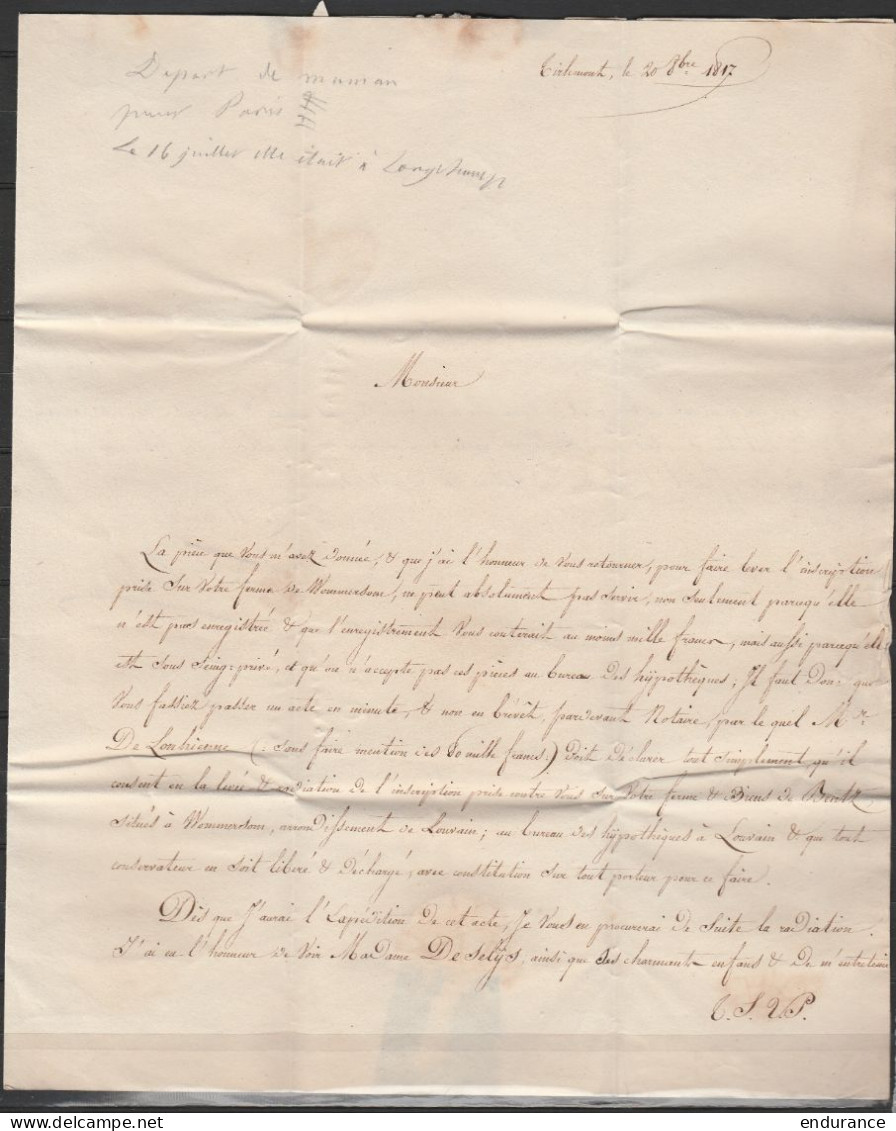 Tirlemont, le 20 8bre 1817
Depart de maman
pour Paris
Le 16 juillet elle était à Longchamps
Monsieur
La pièce que Vous m'avez donnée, & que j'ai l'honneur de Vous retourner, pour faire lever l'inscription
prise sur Votre ferme de Wommersom, ne peut absolument pas servir, non seulement parcequ'elle
n'est pas enregistrée & que l'enregistrement Vous couterait au moins mille francs, mais aussi parcequ'elle
est sous seing-privé, et qu'on n'accepte pas ces pièces au bureau des hÿpothèques; Il faut donc que
Vous fassiez passer un acte en minute, & non en brévêt, pardevant Notaire, par le quel Mr.
De Lonhienne (: sans faire mention des 60 mille francs.) doit déclarer tout simplement, qu'il
consent en la levée & radiation de l'inscription prise contre Vous sur Votre ferme & Biens de
situés à Wommersom, arrondissement de Louvain; au bureau des hÿpothèques à Louvain & que tout
conservateur en soit libéré & déchargé, avec constitution sur tout porteur pour ce faire.
Dès que J'aurai l'Expédition de cet acte, Je Vous en procurerai de suite la radiation.
J'ai eu l'honneur de Voir Madame De Selÿs, ainsi que ses charmants enfans & de m'entretenir
T. S. V. P.
endurance